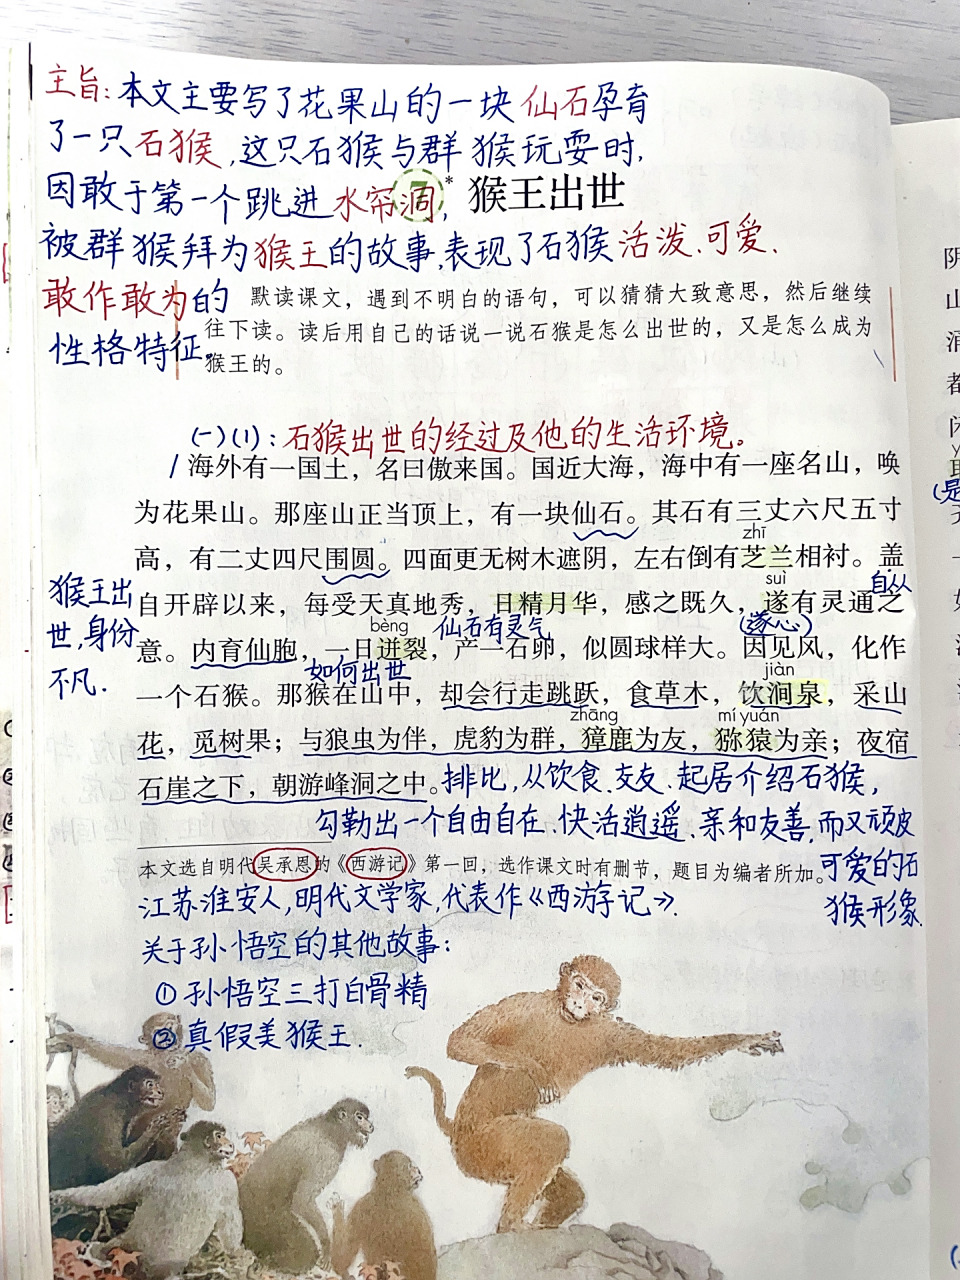 主旨:本文主要写了花果山的一块仙石孕育
了一只石猴,这只石猴与群猴玩耍时,
因敢于第一个跳进水帘洞,
7* 猴王出世
被群猴拜为猴王的故事,表现了石猴活泼、可爱、
敢作敢为的
性格特征。
默读课文，遇到不明白的语句，可以猜猜大致意思，然后继续
往下读。读后用自己的话说一说石猴是怎么出世的，又是怎么成为
猴王的。
(一)(1):石猴出世的经过及他的生活环境。
1海外有一国土，名曰傲来国。国近大海，海中有一座名山，唤
为花果山。那座山正当顶上，有一块仙石。其石有三丈六尺五寸
zhī
高，有二丈四尺围圆。四面更无树木遮阴，左右倒有芝兰相衬。盖
自从
suì
猴王出
世,身份
不凡.
自开辟以来，每受天真地秀，日精月华，感之既久，遂有灵通之
(遂心)
bèng
仙石有灵气
意。内育仙胞，一日迸裂，产一石卵，似圆球样大。因见风，化作
如何出世
jiàn
一个石猴。那猴在山中，却会行走跳跃，食草木，饮涧泉，采山
zhāng mí yuán
花，觅树果；与狼虫为伴，虎豹为群，獐鹿为友，猕猿为亲；夜宿
石崖之下，朝游峰洞之中。
排比,从饮食、交友、起居介绍石猴,
勾勒出一个自由自在、快活逍遥、亲和友善,而又顽皮
可爱的石
猴形象.
本文选自明代吴承恩的《西游记》第一回，选作课文时有删节，题目为编者所加。
江苏淮安人,明代文学家,代表作《西游记》.
关于孙悟空的其他故事:
①孙悟空三打白骨精
②真假美猴王.
阴
山
涌
都